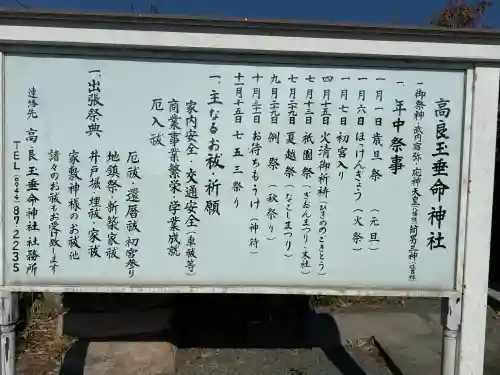 高良玉垂命神社
一 御祭神 武内宿弥・応神天皇(八幡宮)・筒男三神(住吉宮)
一 年中祭事
一月一日 歳旦祭 (元旦)
一月六日 ほっけんぎょう (火祭)
一月七日 初宮入り
四月十五日 火清御祈祷(ひきよめのごきとう)
七月十三日 祇園祭(ぎおんまつり・本社)
七月二十九日 夏越祭(なごしまつり)
九月二十九日 例祭 (秋祭り)
十月三十日 お待ちもうけ(神待)
十二月十五日 七五三祭り
一 主なるお祓・祈願
家内安全・交通安全(車祓等)
商業事業繁栄・学業成就
厄入祓
厄祓・還暦祓 初宮祭り
一 出張祭典
地鎮祭・新築家祓
井戸祓・埋祓・家祓
家敷神様のお祓 他
諸々のお祓もお受け致します
連絡先 高良玉垂命神社 社務所
TEL (0944) 87-2235